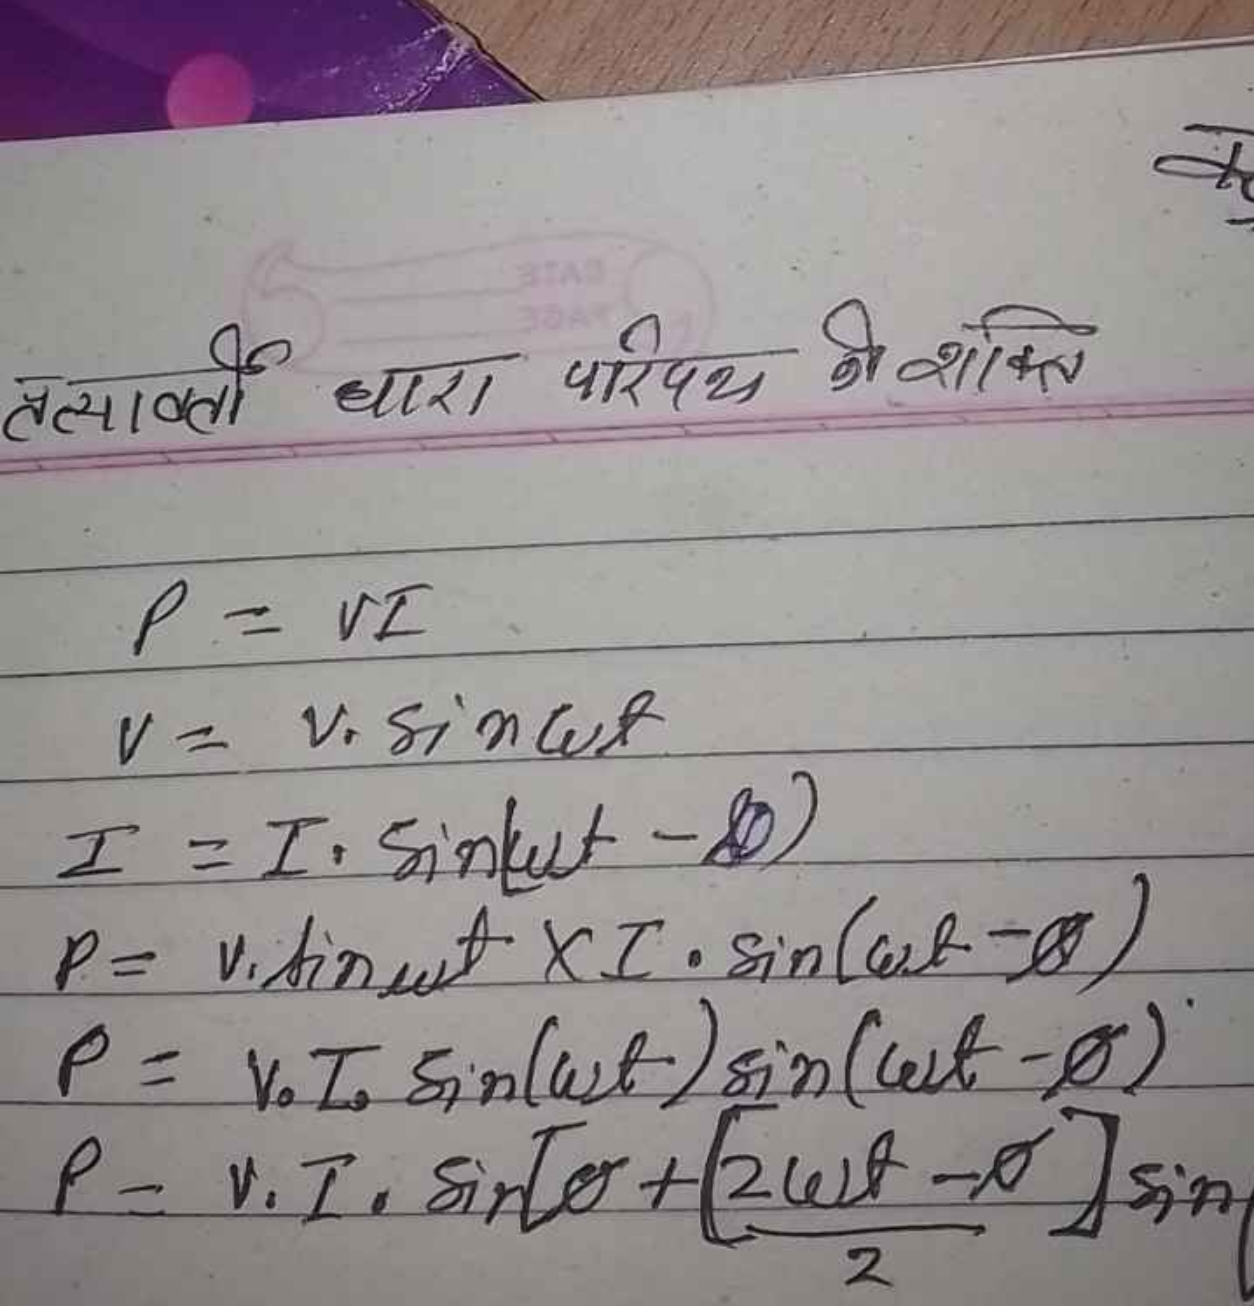 तत्यावर्ती धारा परिपथ में शक्ति
P = VI
V = V₀ sin ωt
I = I₀ sin(ωt - ø)
P = V₀ sin ωt × I₀ sin(ωt - ø)
P = V₀ I₀ sin(ωt) sin(ωt - ø)
P = V₀ I₀ sin[ø + [2ωt - ø / 2] sin(